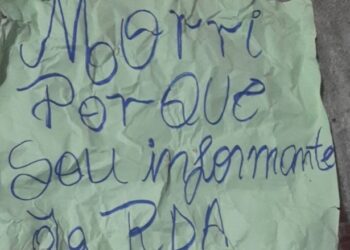 Moorri
PorQUE
Sou informante
da RDA